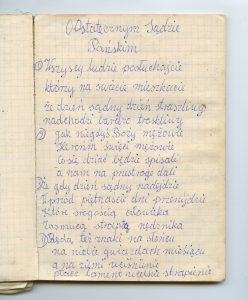 O Ostatecznym Sądzie
Pańskim
1) Wszyscy ludzie posłuchajcie
którzy na świecie mieszkacie
że dzień sądny dzień straszliwy
nadchodzi bardzo troskliwy
2) Jak niegdyś Boży mężowie
Hieronim święci mężowie
Co się dziać będzie spisali
a nam na piśmie podali
3) Że gdy dzień sądny nadejdzie
Wprzód piętnaście dni przemijdzie
Które srogością człowieka
Zasmucą nędznika
4) Będą też znaki na słońcu
na niebie gwiazdach miesiącu
a na ziemi uciśnienie
płacz lament wielkie strapienie